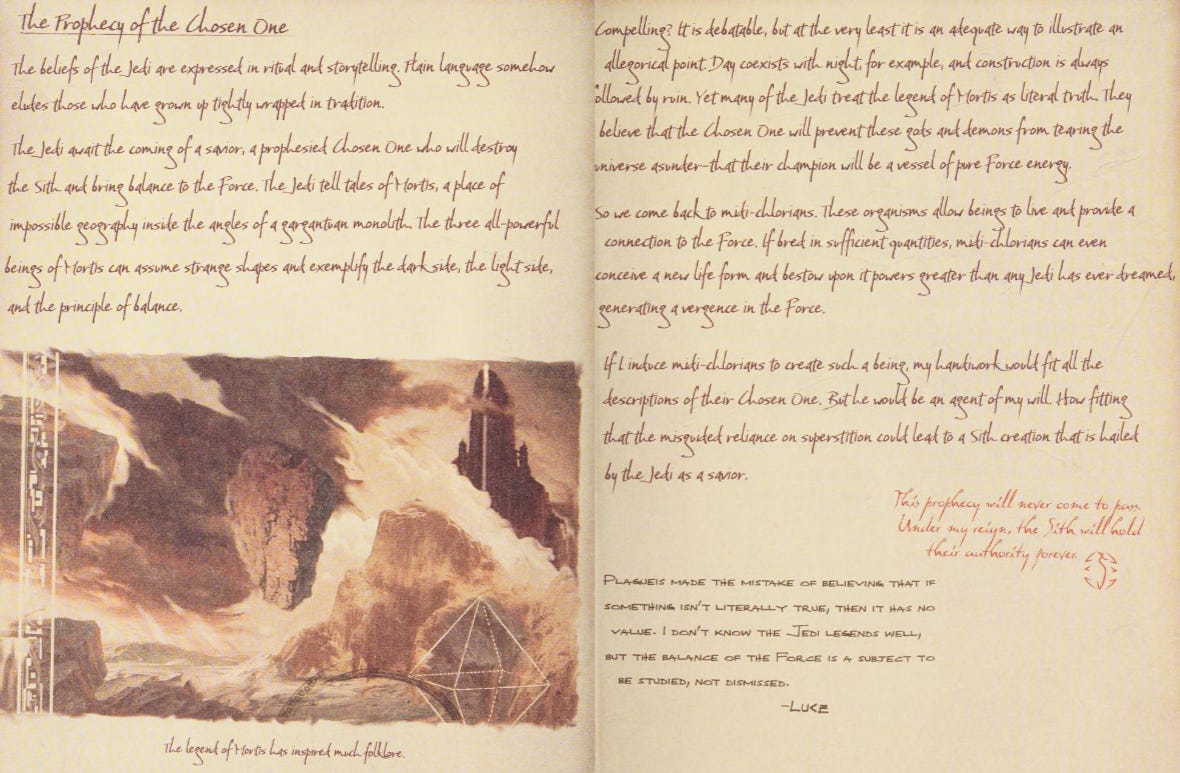 The Prophecy of the Chosen One
The beliefs of the Jedi are expressed in ritual and storytelling. Plain language somehow
eludes those who have grown up tightly wrapped in tradition.
The Jedi await the coming of a savior, a prophesied Chosen One who will destroy
the Sith and bring balance to the Force. The Jedi tell tales of Mortis, a place of
impossible geography inside the angles of a gargantuan monolith. The three all-powerful
beings of Mortis can assume strange shapes and exemplify the dark side, the light side,
and the principle of balance.
The legend of Mortis has inspired much folklore.
Compelling? It is debatable, but at the very least it is an adequate way to illustrate an
allegorical point. Day coexists with night, for example, and construction is always
followed by ruin. Yet many of the Jedi treat the legend of Mortis as literal truth. They
believe that the Chosen One will prevent these gods and demons from tearing the
universe asunder—that their champion will be a vessel of pure Force energy.
So we come back to midi-chlorians. These organisms allow beings to live and provide a
connection to the Force. If bred in sufficient quantities, midi-chlorians can even
conceive a new life form and bestow upon it powers greater than any Jedi has ever dreamed,
generating a vergence in the Force.
If I induce midi-chlorians to create such a being, my handiwork would fit all the
descriptions of their Chosen One. But he would be an agent of my will. How fitting
that the misguided reliance on superstition could lead to a Sith creation that is hailed
by the Jedi as a savior.
This prophecy will never come to pass.
Under my reign, the Sith will hold
their authority forever.
Plagueis made the mistake of believing that if
something isn't literally true, then it has no
value. I don't know the Jedi legends well,
but the balance of the Force is a subject to
be studied, not dismissed.
-Luke